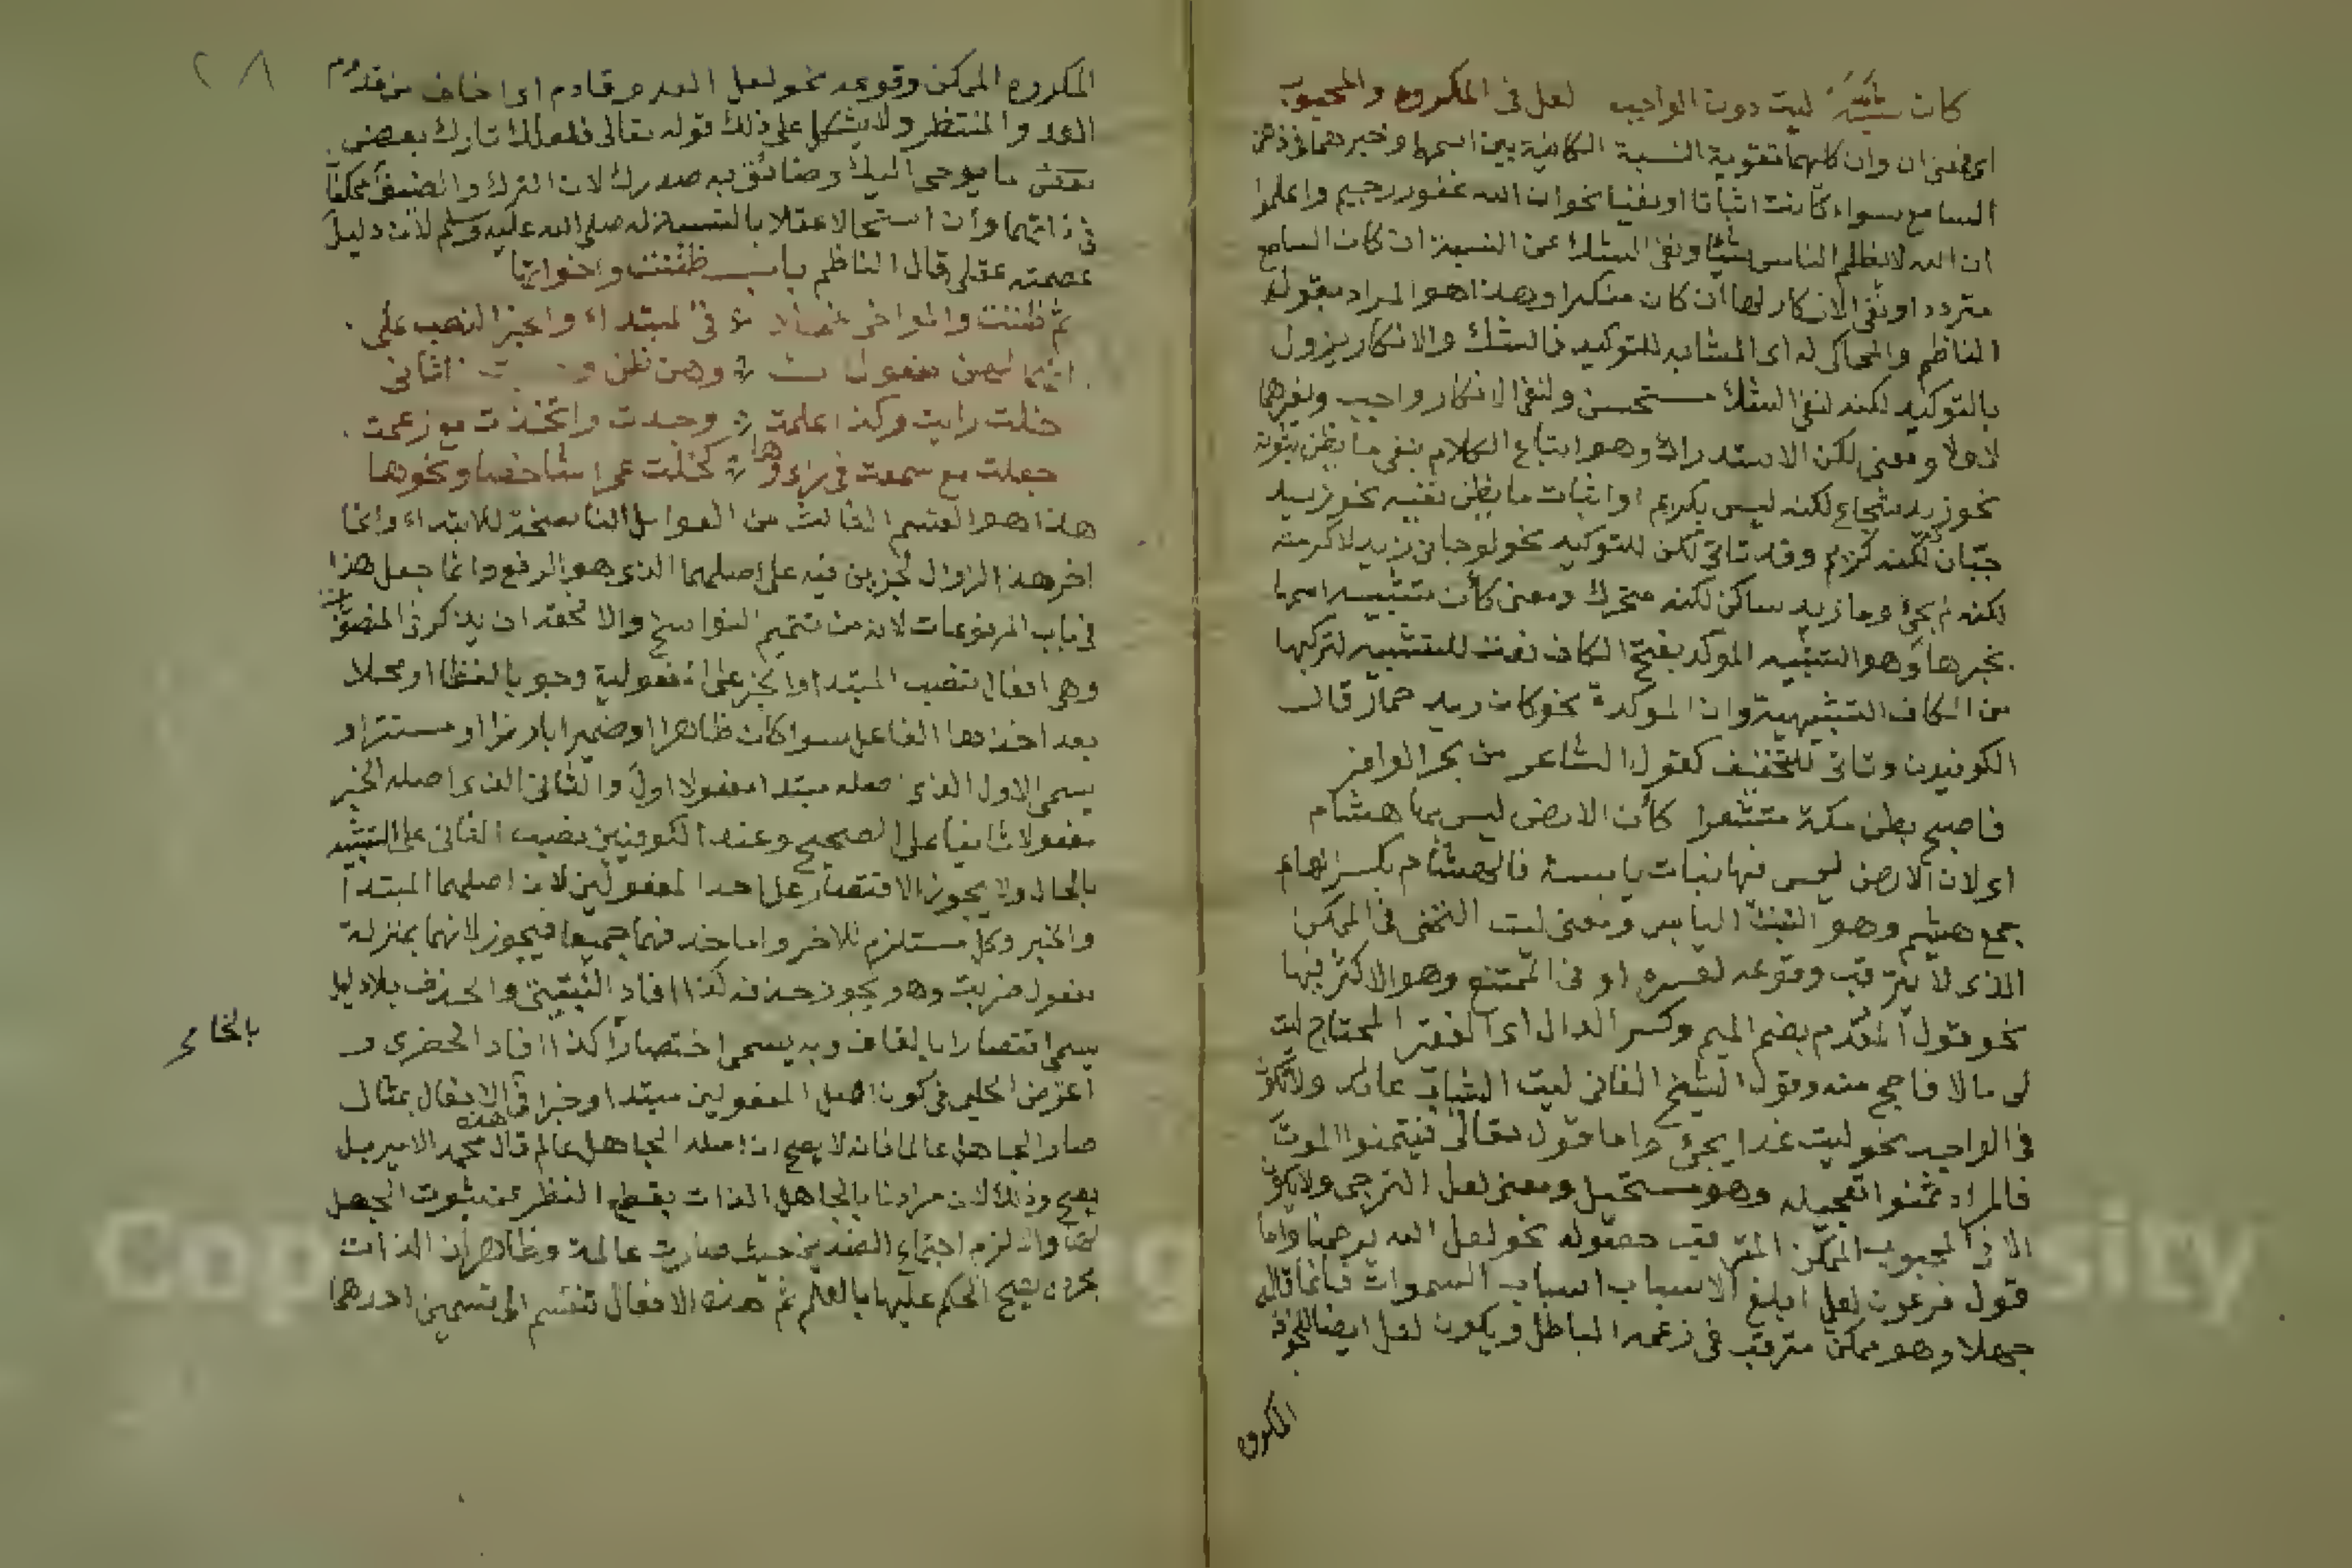 كان شبّه ليت دون الواجب لعل فى المكروه والمحبوب
اى معنى ان وان كلهما تقوية النسبة الكائنة بين اسمها وخبرهما فى ذهن
السامع سواء كانت اثباتا او نفيا نحو ان الله غفور رحيم واعلموا
ان الله لا يظلم الناس شيئا ونفى الشك عن النسبة ان كان السامع
متردد او نفى الانكار لها ان كان منكرا وهذا هو المراد بقول
الناظم والمحاكى له اى المشابه للتوكيد فالشك والانكار يزول
بالتوكيد لكنه لنفى الشك مستحسن ولنفى الانكار واجب ولغيرهما
لا ولا ومعنى لكن الاستدراك وهو اتباع الكلام بنفى ما يظن ثبوته
نحو زيد شجاع لكنه ليس بكريم او اثبات ما يظن نفيه نحو زيد
جبان لكنه كريم وقد تاتى لكن للتوكيد نحو لو جانى زيد لاكرمته
لكنه لم يجئ وما زيد ساكن لكنه متحرك ومعنى كأن تشبيه اسمها
بخبرها وهو التشبيه الموكد بفتح الكاف نعت للتشبيه لتركبها
من الكاف التشبيهية وان الموكدة نحو كان زيد حمار قال
الكوفيون وتاتى للتحقيق كقول الشاعر من بحر الوافر
فاصبح بطن مكة مقشعرا كأن الارض ليس بها هشام
اى لان الارض ليس فيها نبات يابسة فالهشام بكسر الهاء
جمع هشيم وهو النبت اليابس ومعنى ليت التمنى فى الممكن
الذى لا يترقب وقوعه لعسره او فى الممتنع وهو الاكثر فيها
نحو قول المقدم بضم الميم وكسر الدال اى الفقير المحتاج ليت
لى مالا فاحج منه وقول الشيخ الفانى ليت الشباب عائد ولا يكون
فى الواجب نحو ليت غدا يجئ واما قول تعالى فتمنوا الموت
فالمراد تمنوا تعجيله وهو مستحيل ومعنى لعل الترجى ولا يكون
الا فى المحبوب الممكن المترقب حصوله نحو لعل الله يرحمنا واما
قول فرعون لعلى ابلغ الاسباب اسباب السموات فانما قاله
جهلا وهو ممكن مترقب فى زعمه الباطل ويكون لعل ايضا للخوف
المكروه
٢٨
المكروه الممكن وقوعه نحو لعل العدو قادم اى اخاف من قدوم
العدو المنتظر ولا يشكل على ذلك قوله تعالى فلعلك تارك بعض
ما يوحى اليك وضائق به صدرك لان الترك والضيق ممكنا
فى ذاتهما وان استحالا عقلا بالنسبة له صلى الله عليه وسلم لان دليل
عصمته عقلى قال الناظم باب ظننت واخواتها
ثم ظننت واللواخى فى المبتداء والخبر النصب على
انهما مفعول وهن ظن و الثانى
خلت رايت وكذا علمت وجدت واتخذت مع زعمت
جعلت مع سمعت فى راء وها كخلت عمرا شاخصا ونحوها
هذا هو القسم الثالث من العوامل الناسخة للابتداء وانما
اخر هذا لزوال الجزئين فيه على اصلهما الذى هو الرفع وانما جعل هذا
فى باب المرفوعات لانه من تتميم النواسخ والا فحقه ان يذكر فى المنصوبات
وهى افعال تنصب المبتدا والخبر على المفعولية وجوبا لفظا او محلا
بعد اخذها الفاعل سوا كان ظاهرا او ضميرا بارزا او مستترا و
يسمى الاول الذى اصله مبتدا مفعولا اول والثانى الذى اصله الخبر
مفعولا ثانيا على الصحيح وعند الكوفيين نصب الثانى على التشبيه
بالحال ولا يجوز الاقتصار على احد المفعولين لان اصلهما المبتدا
والخبر وكل مستلزم للاخر واما حذفهما جميعا فيجوز لانهما بمنزلة
مفعول ضربت وهو يجوز حذفه كذا افاد والحذف بلا دليل
يسمى اقتصارا بالقاف وبه يسمى اختصارا كذا افاد الخضرى و
بالخاء
اعترض الحلبى فى كون اصل المفعولين مبتدا وخبرا فى هذه الافعال بمثال
صار الجاهل عالما فانه لا يصح ان اصله الجاهل عالم قال محمد الامير بل
يصح وذلك لان مرادنا بالجاهل الذات بقطع النظر عن ثبوت الجهل
لها والا لزم اجتماع الضدين حيث صارت عالمة وظاهر ان الذات
يصح الحكم عليها بالعلم ثم هذه الافعال تنقسم الى قسمين احدهما